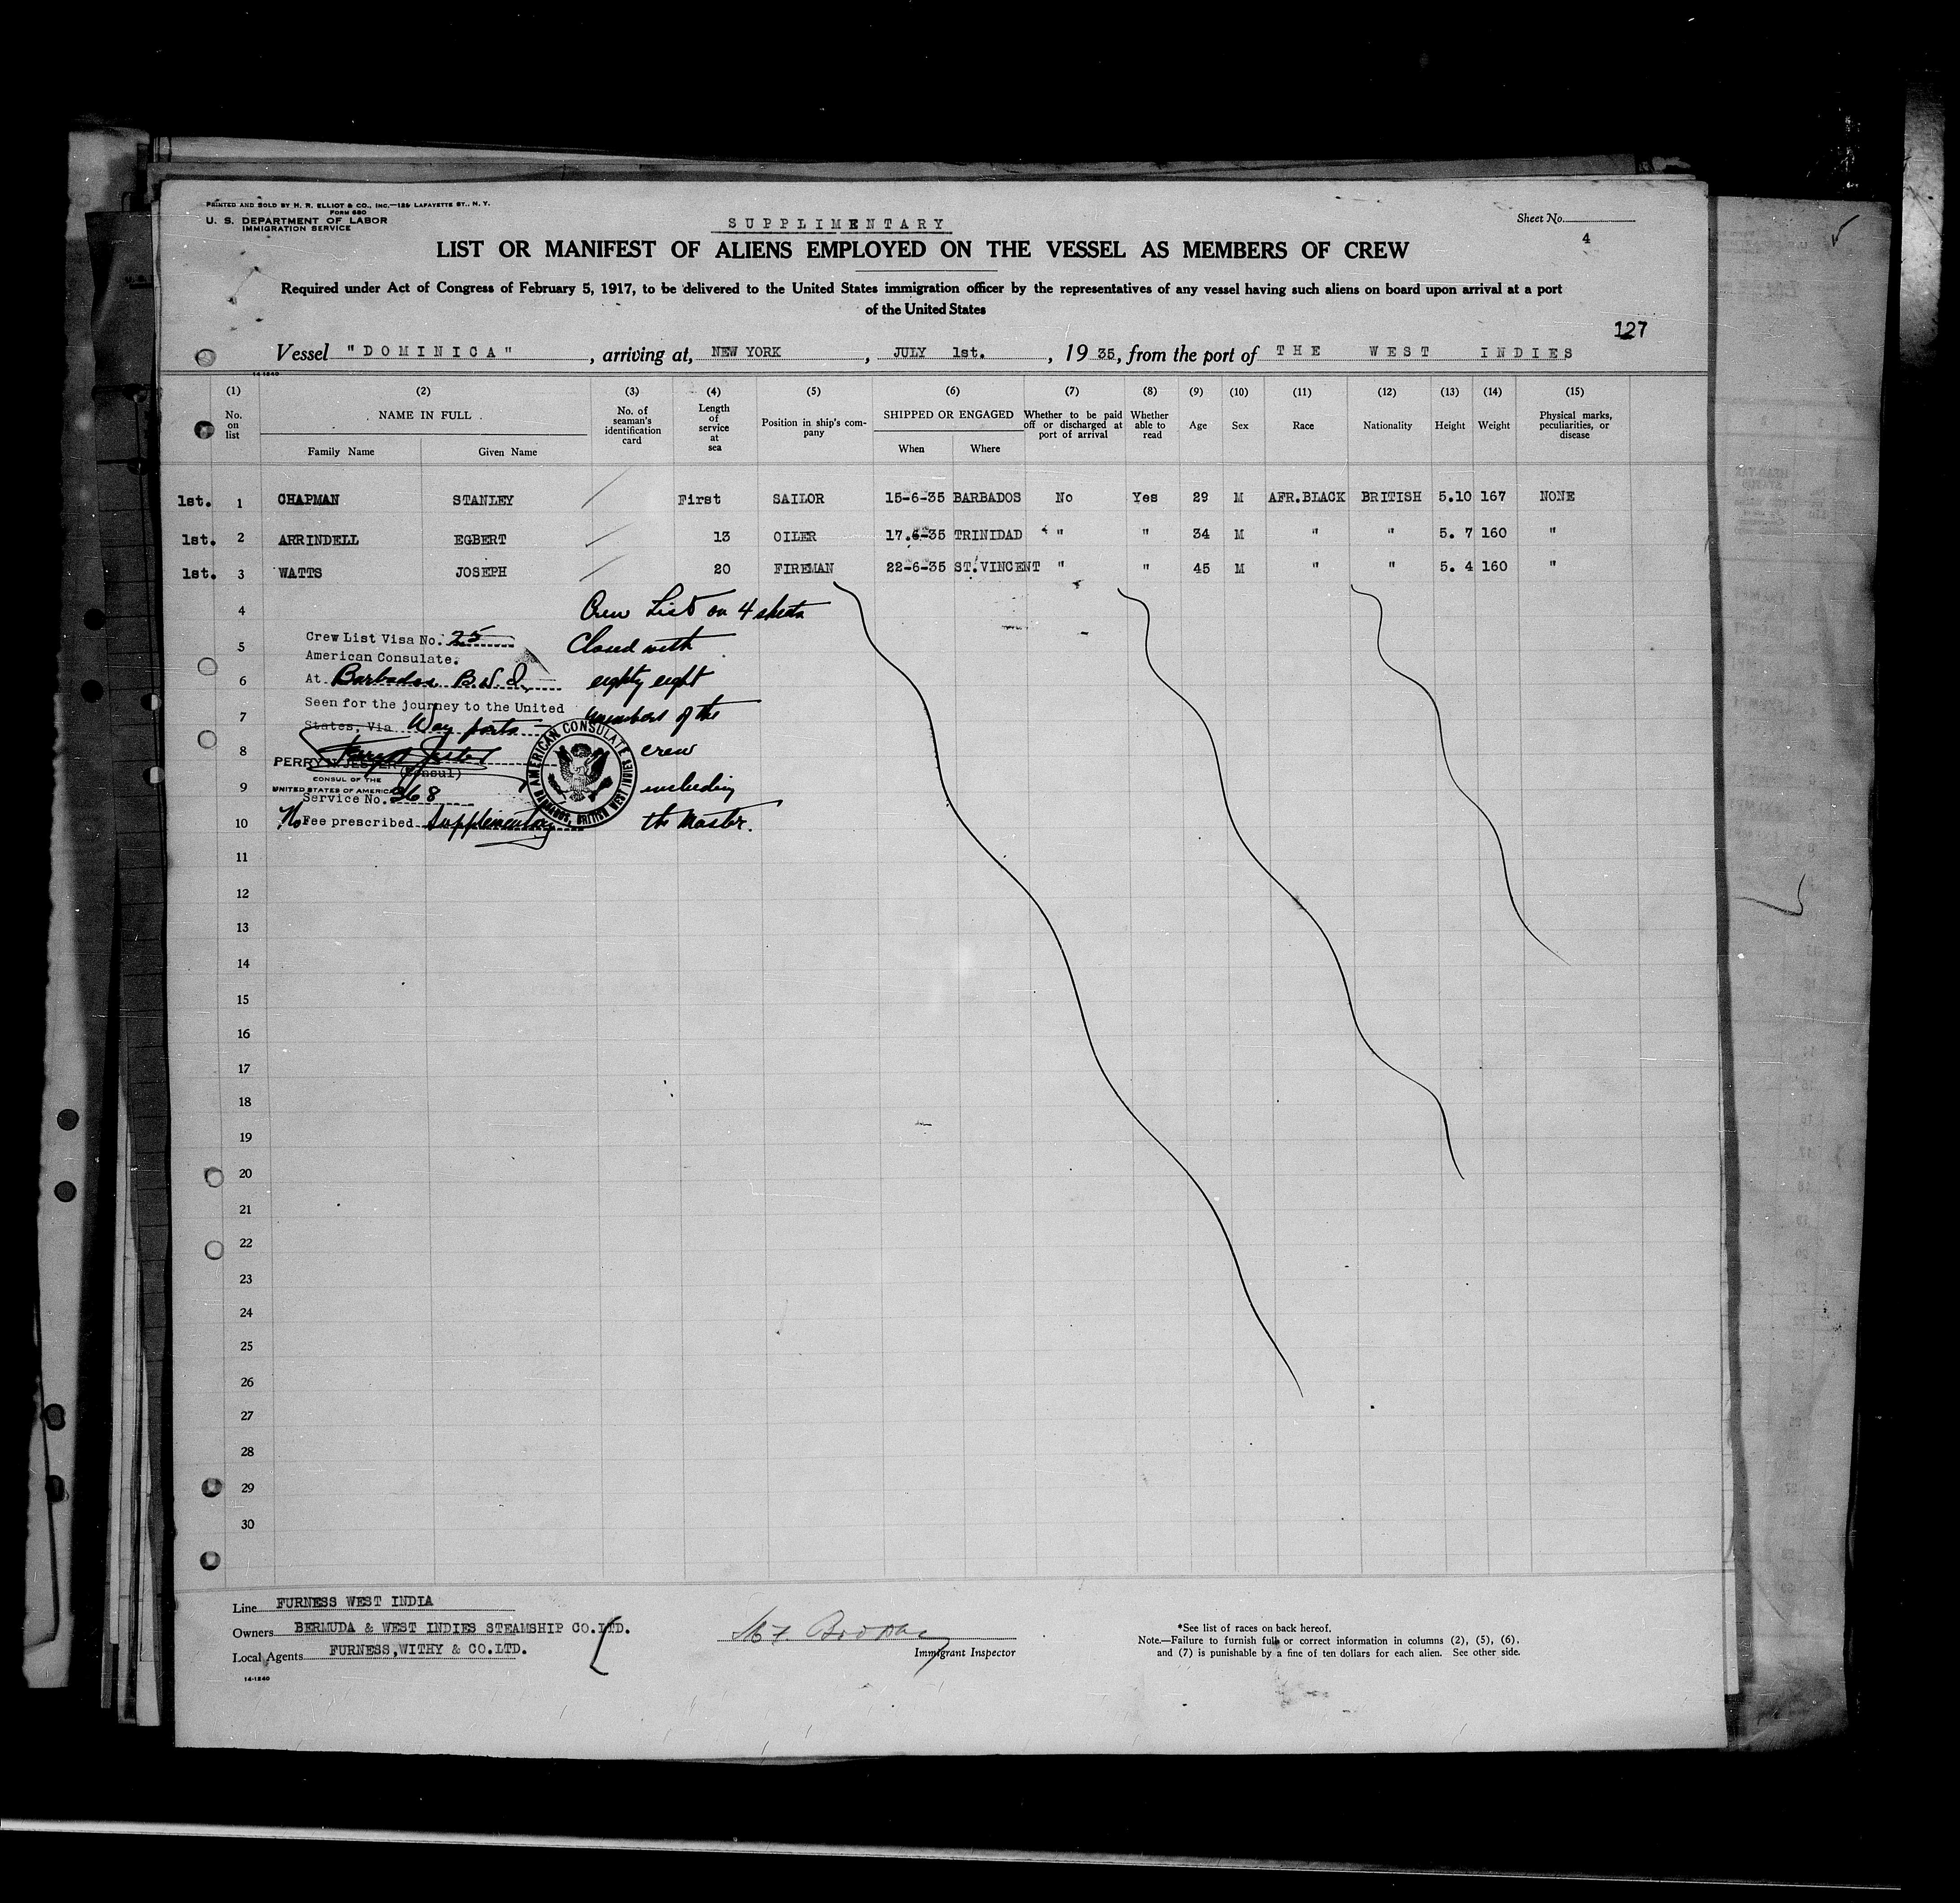 PRINTED AND SOLD BY H. R. ELLIOT & CO., INC.—125 LAFAYETTE ST., N. Y.
FORM 680
U. S. DEPARTMENT OF LABOR
IMMIGRATION SERVICE
SUPPLIMENTARY
Sheet No.
4
LIST OR MANIFEST OF ALIENS EMPLOYED ON THE VESSEL AS MEMBERS OF CREW
Required under Act of Congress of February 5, 1917, to be delivered to the United States immigration officer by the representatives of any vessel having such aliens on board upon arrival at a port
of the United States
127
Vessel "DOMINICA", arriving at, NEW YORK, JULY 1st., 1935, from the port of THE WEST INDIES
14-1240
(1) (2) (3) (4) (5) (6) (7) (8) (9) (10) (11) (12) (13) (14) (15)
No. on list
NAME IN FULL
Family Name
Given Name
No. of seaman's identification card
Length of service at sea
Position in ship's company
SHIPPED OR ENGAGED
When
Where
Whether to be paid off or discharged at port of arrival
Whether able to read
Age
Sex
Race
Nationality
Height
Weight
Physical marks, peculiarities, or disease
1st. 1 CHAPMAN STANLEY First SAILOR 15-6-35 BARBADOS No Yes 29 M AFR.BLACK BRITISH 5.10 167 NONE
1st. 2 ARRINDELL EGBERT 13 OILER 17.6-35 TRINIDAD " " 34 M " " 5. 7 160 "
1st. 3 WATTS JOSEPH 20 FIREMAN 22-6-35 ST.VINCENT " " 45 M " " 5. 4 160 "
4
Crew List on 4 sheets
Closed with
eighty eight
members of the
crew
including
the Master.
Crew List Visa No. 25
American Consulate.
At Barbados B.W.I.
Seen for the journey to the United
States, Via Way ports
PERRY N. JESTER
(Consul)
CONSUL OF THE
UNITED STATES OF AMERICA
Service No. 368
No Fee prescribed Supplementary
AMERICAN CONSULATE
BARBADOS, BRITISH WEST INDIES
5
6
7
8
9
10
11
12
13
14
15
16
17
18
19
20
21
22
23
24
25
26
27
28
29
30
Line FURNESS WEST INDIA
Owners BERMUDA & WEST INDIES STEAMSHIP CO.LTD.
Local Agents FURNESS,WITHY & CO.LTD.
14-1240
Immigrant Inspector
*See list of races on back hereof.
Note.—Failure to furnish full or correct information in columns (2), (5), (6),
and (7) is punishable by a fine of ten dollars for each alien. See other side.